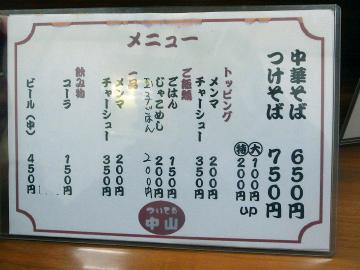 メニュー
中華そば 650円
つけそば 750円
大 100円up
特大 200円
トッピング
メンマ 200円
チャーシュー 350円
ご飯類
ごはん 150円
じゃこめし 200円
玉子ごはん 200円
一品
メンマ 200円
チャーシュー 350円
飲み物
コーラ 150円
ビール(中) 450円
中山